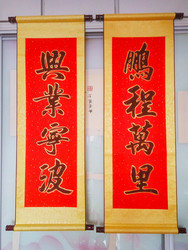 鵬程萬里
興業寧波